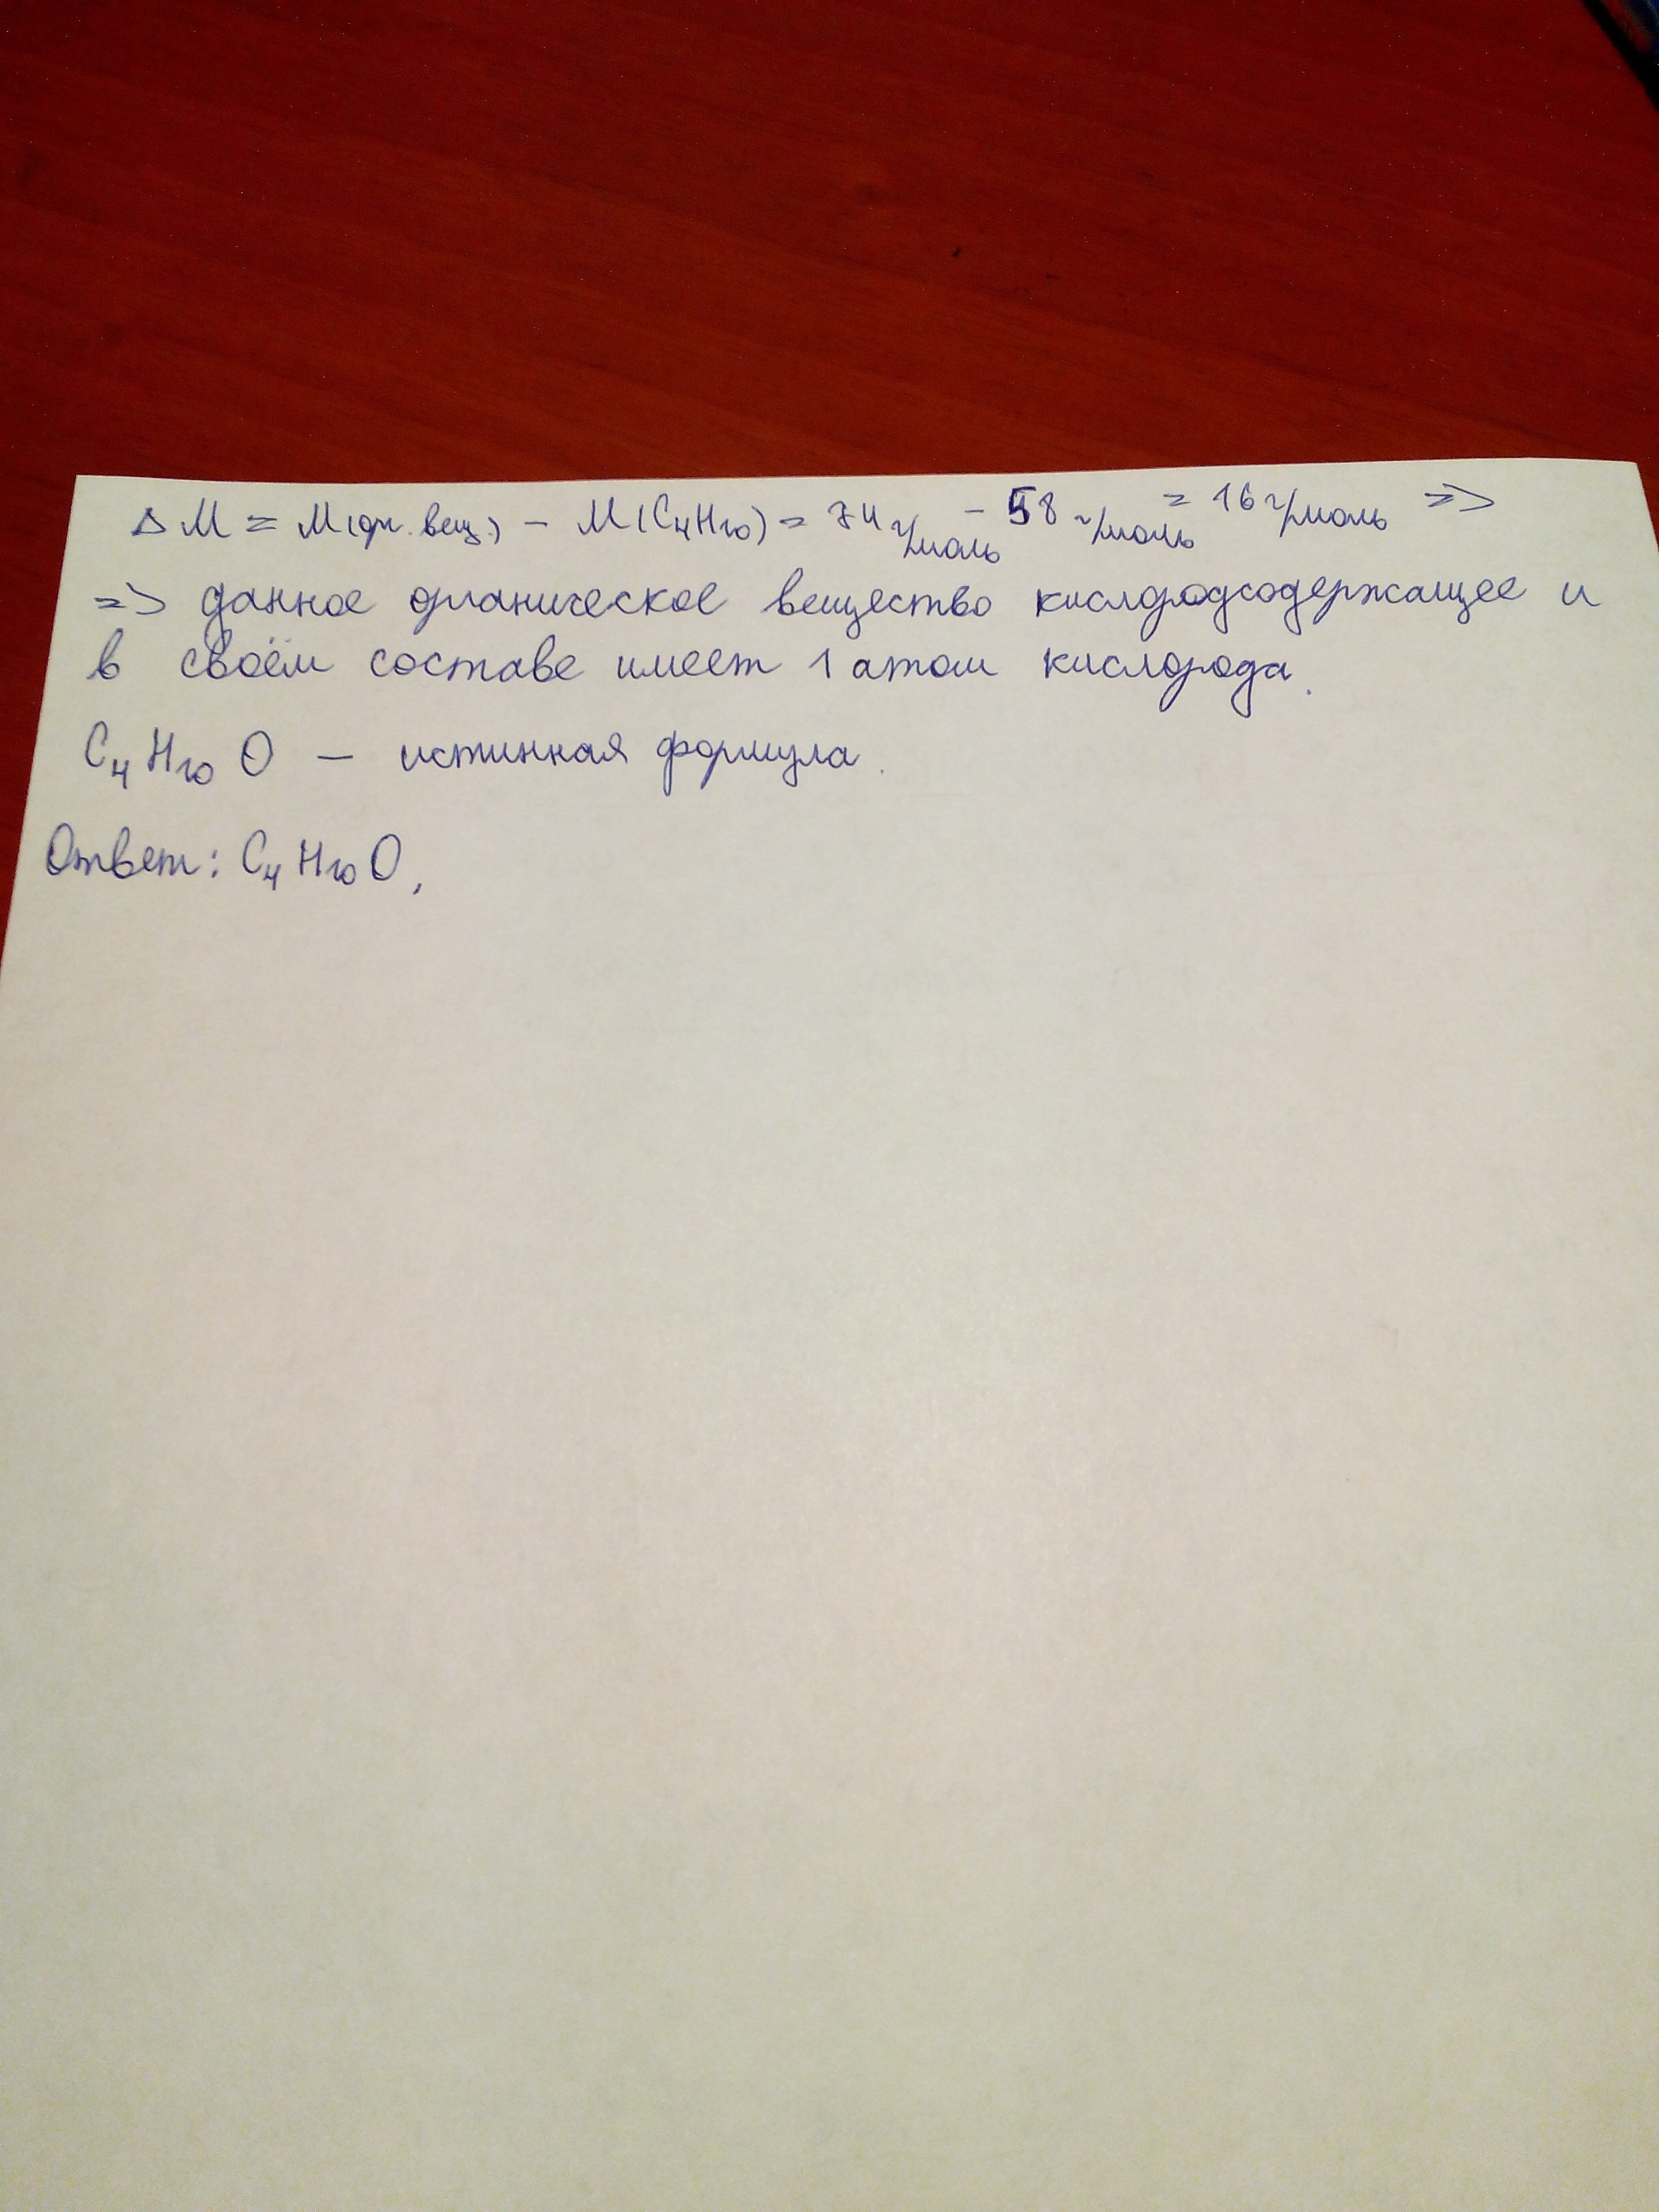 Δ M = M(орг. вещ.) – M(C₄H₁₀) = 74 г/моль – 58 г/моль = 16 г/моль =>
=> данное органическое вещество кислородсодержащее и
в своём составе имеет 1 атом кислорода.
C₄H₁₀O – истинная формула.
Ответ: C₄H₁₀O.